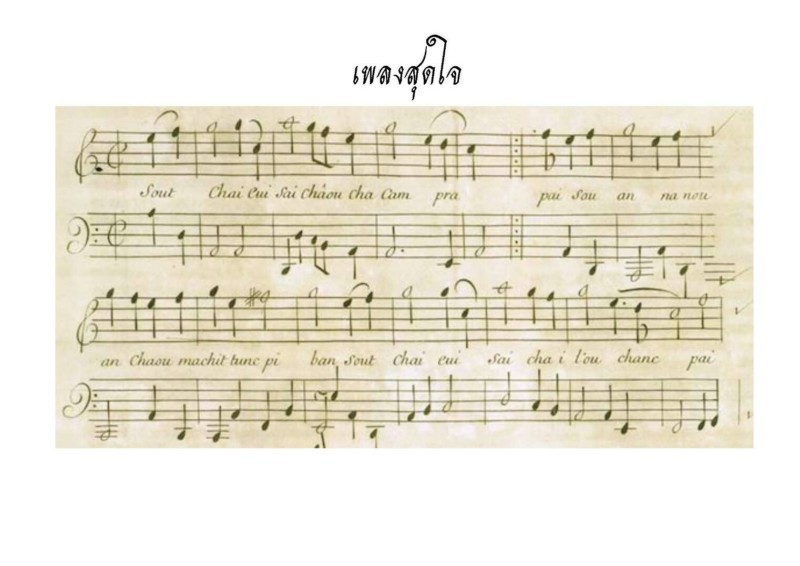 เพลงสุดใจ
Sout Chai Eui Sai Chàou Cha Cam pra pai Sou an na nou
an Chaou machit tunc pi ban Sout Chai eui Sai cha i l'ou chanc pai